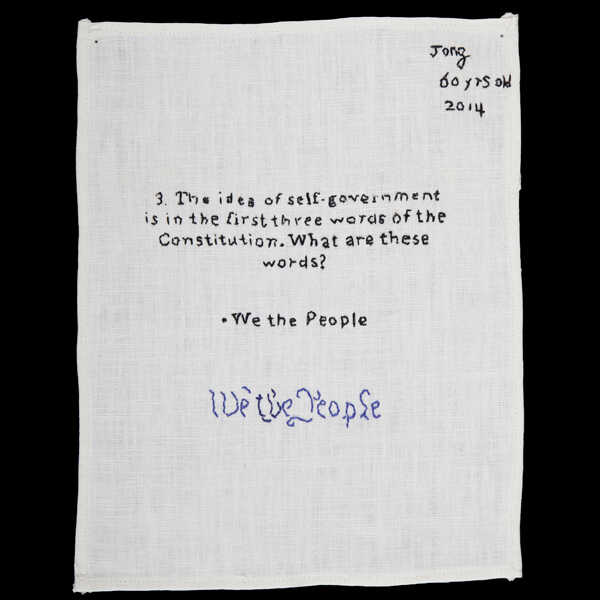 Jong
60 yrs old
2014
3. The idea of self-government
is in the first three words of the
Constitution. What are these
words?
•We the People
We the People